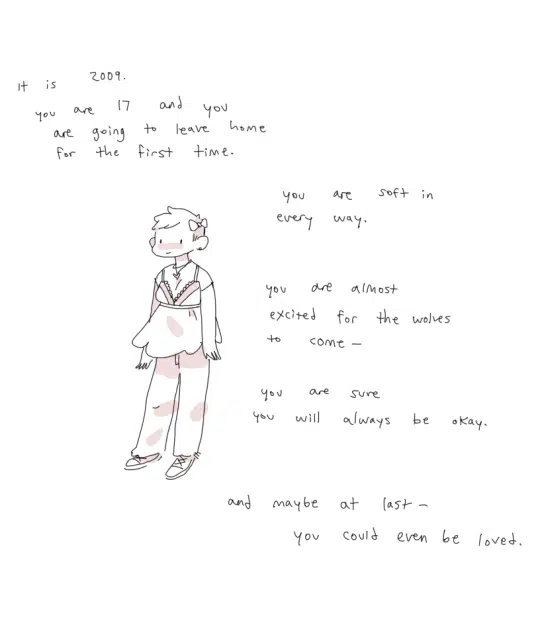 It is 2009.
you are 17 and you
are going to leave home
for the first time.
you are soft in
every way.
you are almost
excited for the wolves
to come —
you are sure
you will always be okay.
and maybe at last —
you could even be loved.